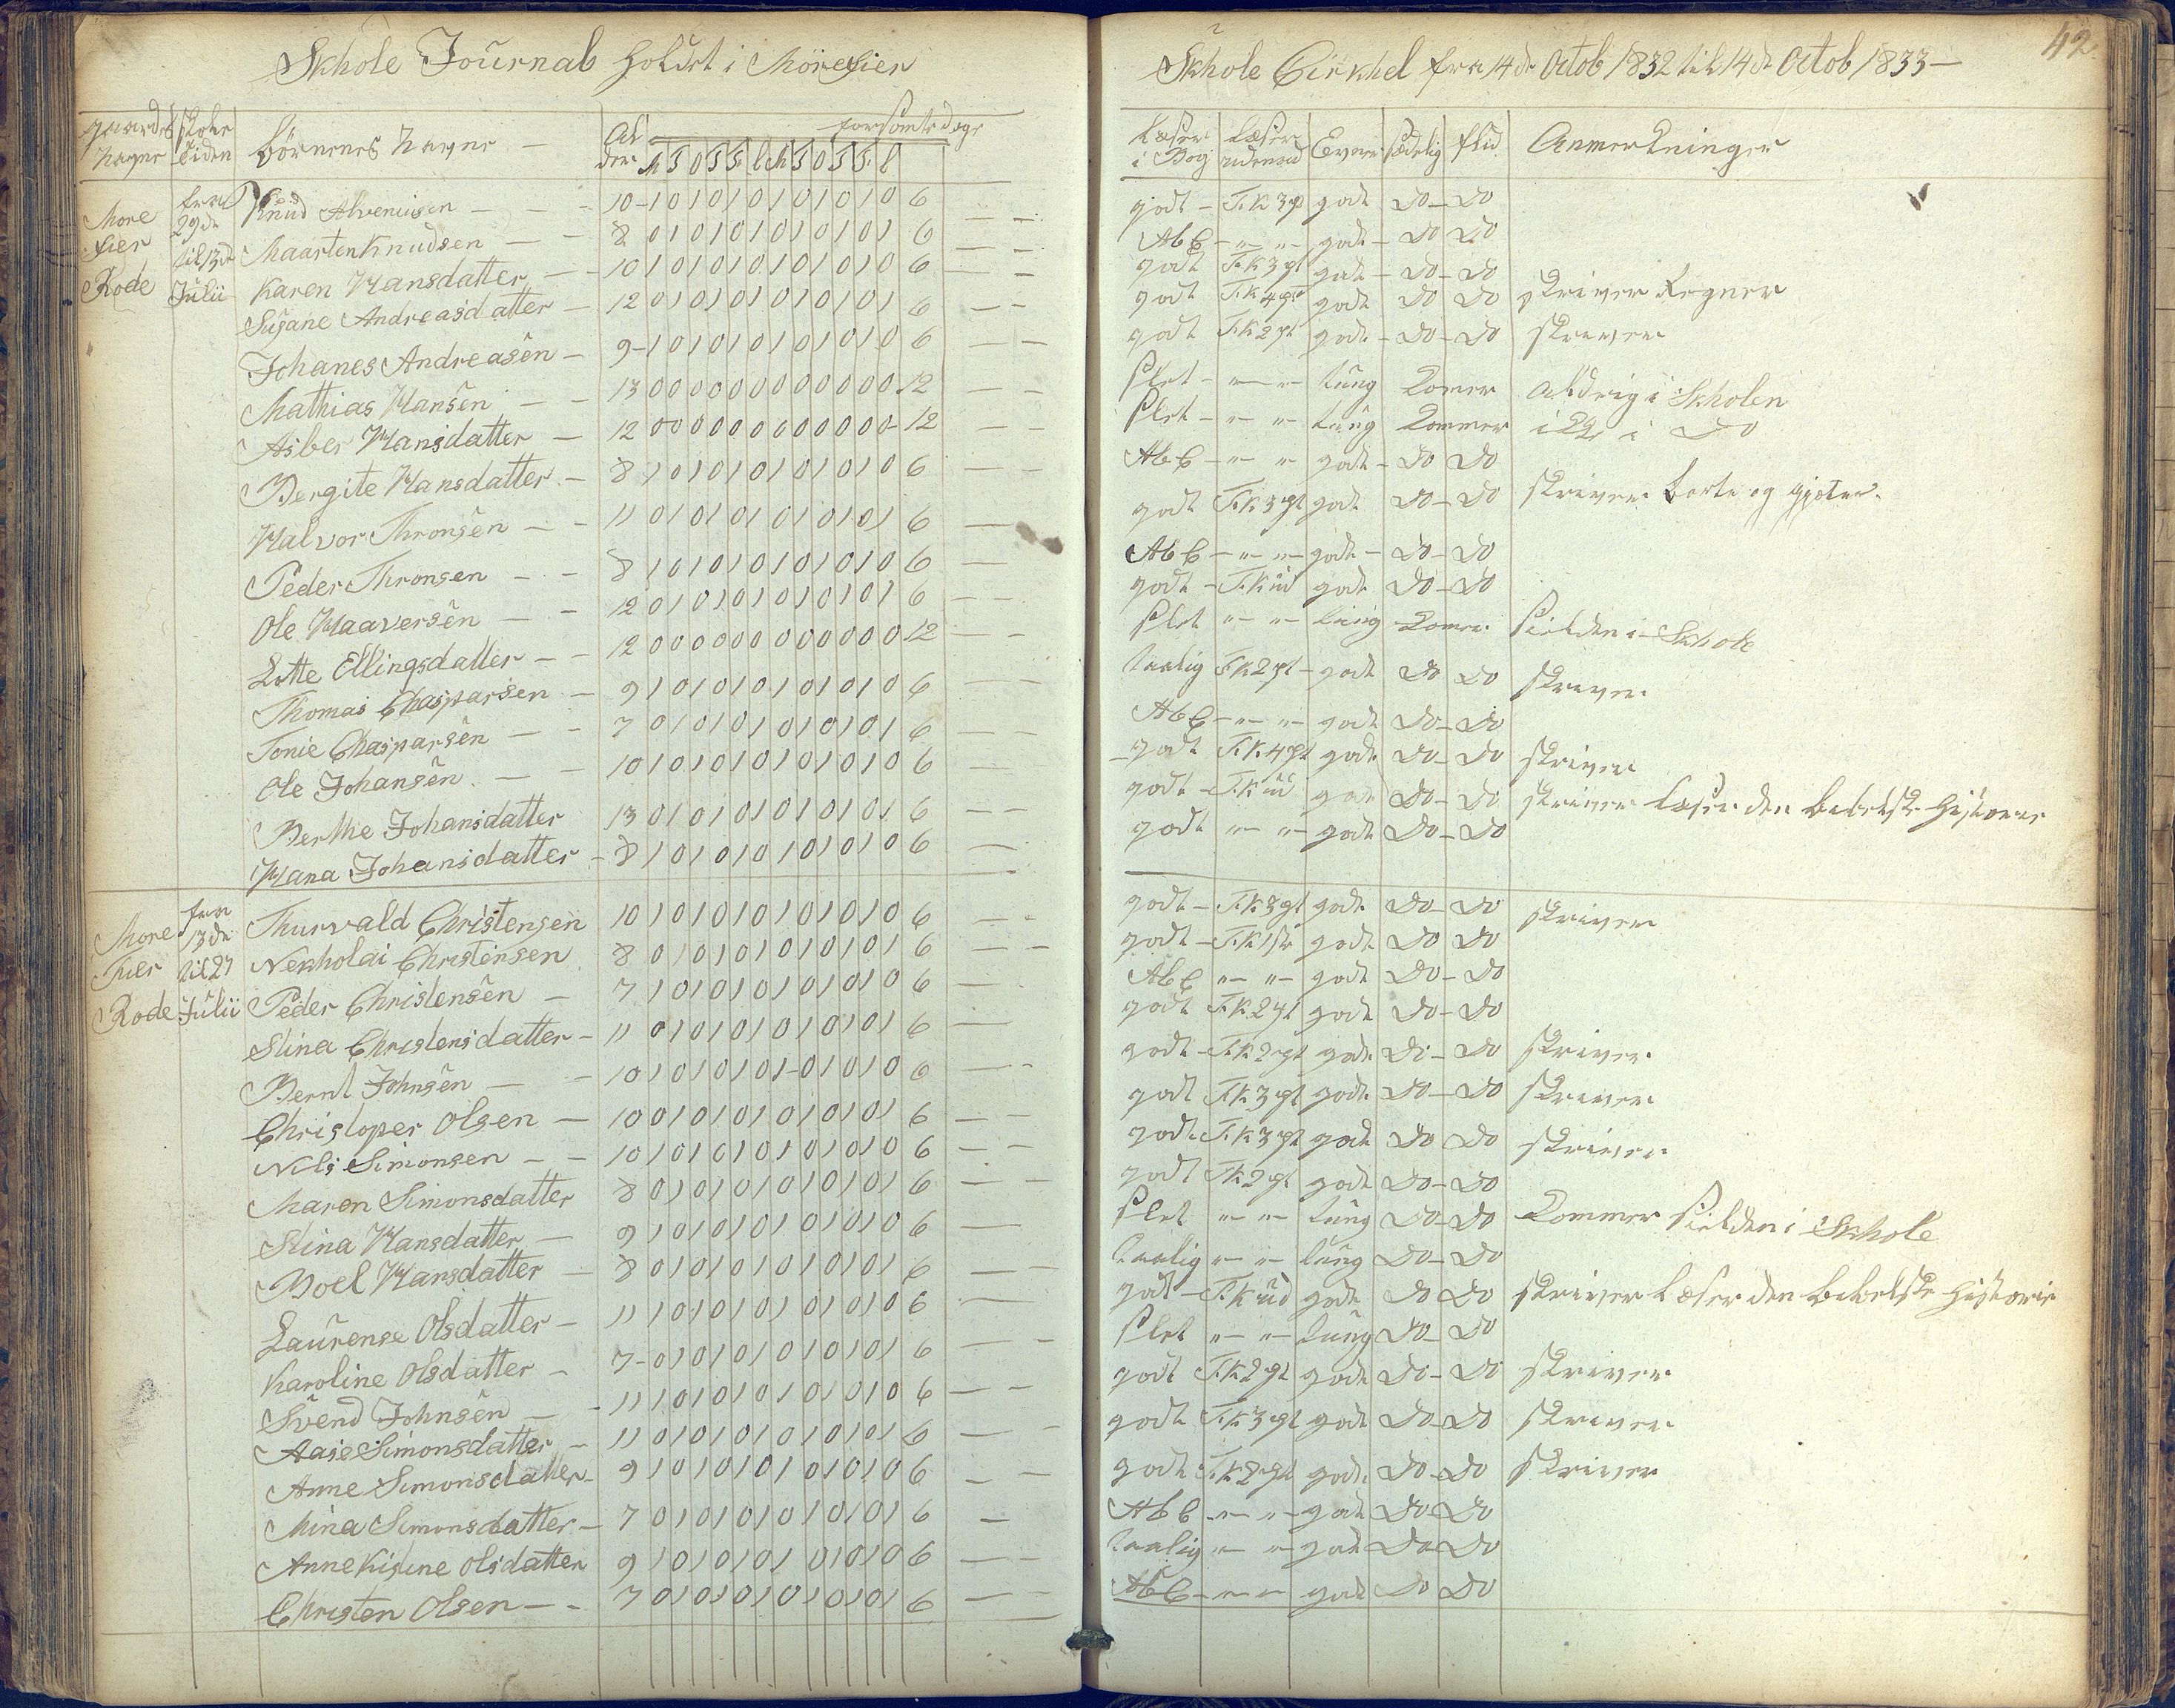 Skhole Journal holdet i Mörefier
Skhole Cirkhel fra 14de Octob 1832 til 14de Octob 1833 —
42
gaardes Nagne | Skole tiden | börnenes Nagne — | Alder | forsömte dage | M T O T F L M T O T F L
Læser i Bog | Læser udenad | Evner | sædelig | flid | Anmerkninger
More fier Rode | fra 29de til 13de Julii
Knud Alvenisen — 10 1 0 1 0 1 0 1 0 1 0 1 0 6 | godt — T.K 3 pt godt Do — Do
Maarten Knudsen — 8 0 1 0 1 0 1 0 1 0 1 0 1 6 | AbC — " — " — godt — Do Do
Karen Hansdatter — 10 1 0 1 0 1 0 1 0 1 0 1 0 6 | godt T.K 3 pt godt — Do — Do
Susane Andreasdatter — 12 0 1 0 1 0 1 0 1 0 1 0 1 6 | godt T.K 4 pt godt Do Do skriver Regner
Johanes Andreasen — 9 1 0 1 0 1 0 1 0 1 0 1 0 6 | godt T.K 2 pt godt — Do — Do skriver
Mathias Hansen — 13 0 0 0 0 0 0 0 0 0 0 0 0 12 | slet — " — " tung Komer aldrig i Skholen
Asber Hansdatter — 12 0 0 0 0 0 0 0 0 0 0 0 0 12 | slet — " — " tung Kommer i Do
Bergite Hansdatter — 8 1 0 1 0 1 0 1 0 1 0 1 0 6 | AbC — " — " godt — Do Do
Halvor Thronsen — 11 0 1 0 1 0 1 0 1 0 1 0 1 6 | godt T.K 3 pt godt Do — Do skriver borte og gjæter
Peder Thronsen — 8 1 0 1 0 1 0 1 0 1 0 1 0 6 | AbC — " — " — godt — Do — Do
Ole Haaversen — 12 0 1 0 1 0 1 0 1 0 1 0 1 6 | godt — T.K ud godt Do — Do
Lotte Ellingsdatter — 12 0 0 0 0 0 0 0 0 0 0 0 0 12 | slet " — " — tung Komer sielden i Skhole
Thomas Chasparsen — 9 1 0 1 0 1 0 1 0 1 0 1 0 6 | taalig T.K 2 pt — godt Do Do skriver
Tonie Chasparsen — 7 0 1 0 1 0 1 0 1 0 1 0 1 6 | AbC — " — " godt Do — Do
Ole Johansen — 10 1 0 1 0 1 0 1 0 1 0 1 0 6 | godt T.K 4 pt godt Do — Do skriver
Berthe Johansdatter 13 0 1 0 1 0 1 0 1 0 1 0 1 6 | godt — T.K ud godt Do — Do skriver læser den bibelske Historie
Hana Johansdatter — 8 1 0 1 0 1 0 1 0 1 0 1 0 6 | godt " — " — godt Do — Do
More Fier Rode | fra 13de til 27 Julii
Thurvald Christensen 10 1 0 1 0 1 0 1 0 1 0 1 0 6 | godt — T.K 3 pt godt Do — Do skriver
Nekholai Christensen 8 0 1 0 1 0 1 0 1 0 1 0 1 6 | godt — T.K 1ste godt Do Do
Peder Christensen — 7 1 0 1 0 1 0 1 0 1 0 1 0 6 | AbC " — " — godt Do — Do
Stina Christensdatter — 11 0 1 0 1 0 1 0 1 0 1 0 1 6 | godt T.K 2 pt godt Do — Do
Bernt Johnsen — 10 1 0 1 0 1 0 1 0 1 0 1 0 6 | godt — T.K 2 pt godt Do — Do skriver
Christoper Olsen — 10 0 1 0 1 0 1 0 1 0 1 0 1 6 | godt T.K 3 pt godt Do — Do skriver
Nils Simonsen — 10 1 0 1 0 1 0 1 0 1 0 1 0 6 | godt T.K 3 pt godt Do Do skriver
Maren Simonsdatter 8 0 1 0 1 0 1 0 1 0 1 0 1 6 | godt T.K 2 pt godt Do — Do
Stina Hansdatter — 9 1 0 1 0 1 0 1 0 1 0 1 0 6 | slet " — " — tung Do — Do Kommer sielden i Skhole
Boel Hansdatter — 8 0 1 0 1 0 1 0 1 0 1 0 1 6 | taalig " — " — tung Do — Do
Laurense Olsdatter — 11 1 0 1 0 1 0 1 0 1 0 1 0 6 | godt — T.K ud godt Do Do skriver læser den bibelske Historie
Karoline Olsdatter — 7 0 1 0 1 0 1 0 1 0 1 0 1 6 | slet " — " — tung Do — Do
Svend Johnsen — 11 1 0 1 0 1 0 1 0 1 0 1 0 6 | godt T.K 2 pt godt Do — Do skriver
Aase Simonsdatter — 11 0 1 0 1 0 1 0 1 0 1 0 1 6 | godt T.K 3 pt godt Do — Do skriver
Anne Simonsdatter — 9 1 0 1 0 1 0 1 0 1 0 1 0 6 | godt T.K 2 pt godt Do — Do skriver
Mina Simonsdatter — 7 0 1 0 1 0 1 0 1 0 1 0 1 6 | AbC — " — " — godt Do — Do
Anne Kistine Olsdatter 9 1 0 1 0 1 0 1 0 1 0 1 0 6 | taalig " — " godt Do — Do
Christen Olsen — 7 0 1 0 1 0 1 0 1 0 1 0 1 6 | AbC — " — " — godt Do Do